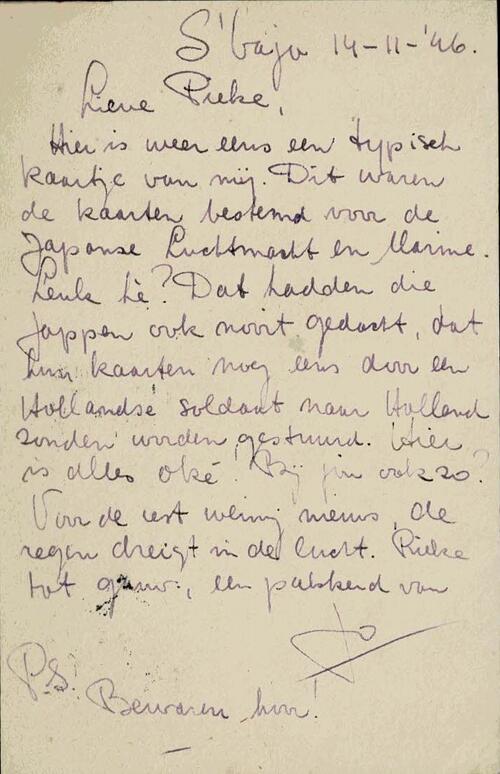 S'baja 14-11-'46.
Lieve Pieke,
Hier is weer eens een typisch
kaartje van mij. Dit waren
de kaarten bestemd voor de
Japanse Luchtmacht en Marine.
Leuk hè? Dat hadden die
Jappen ook nooit gedacht, dat
hun kaarten nog eens door een
Hollandse soldaat naar Holland
zouden worden gestuurd. Hier
is alles oké! Bij jou ook zo?
Voor de rest weinig nieuws, de
regen dreigt in de lucht. Pieke
tot gauw, een pakkerd van
Jo
P.S.
Bewaren hoor!